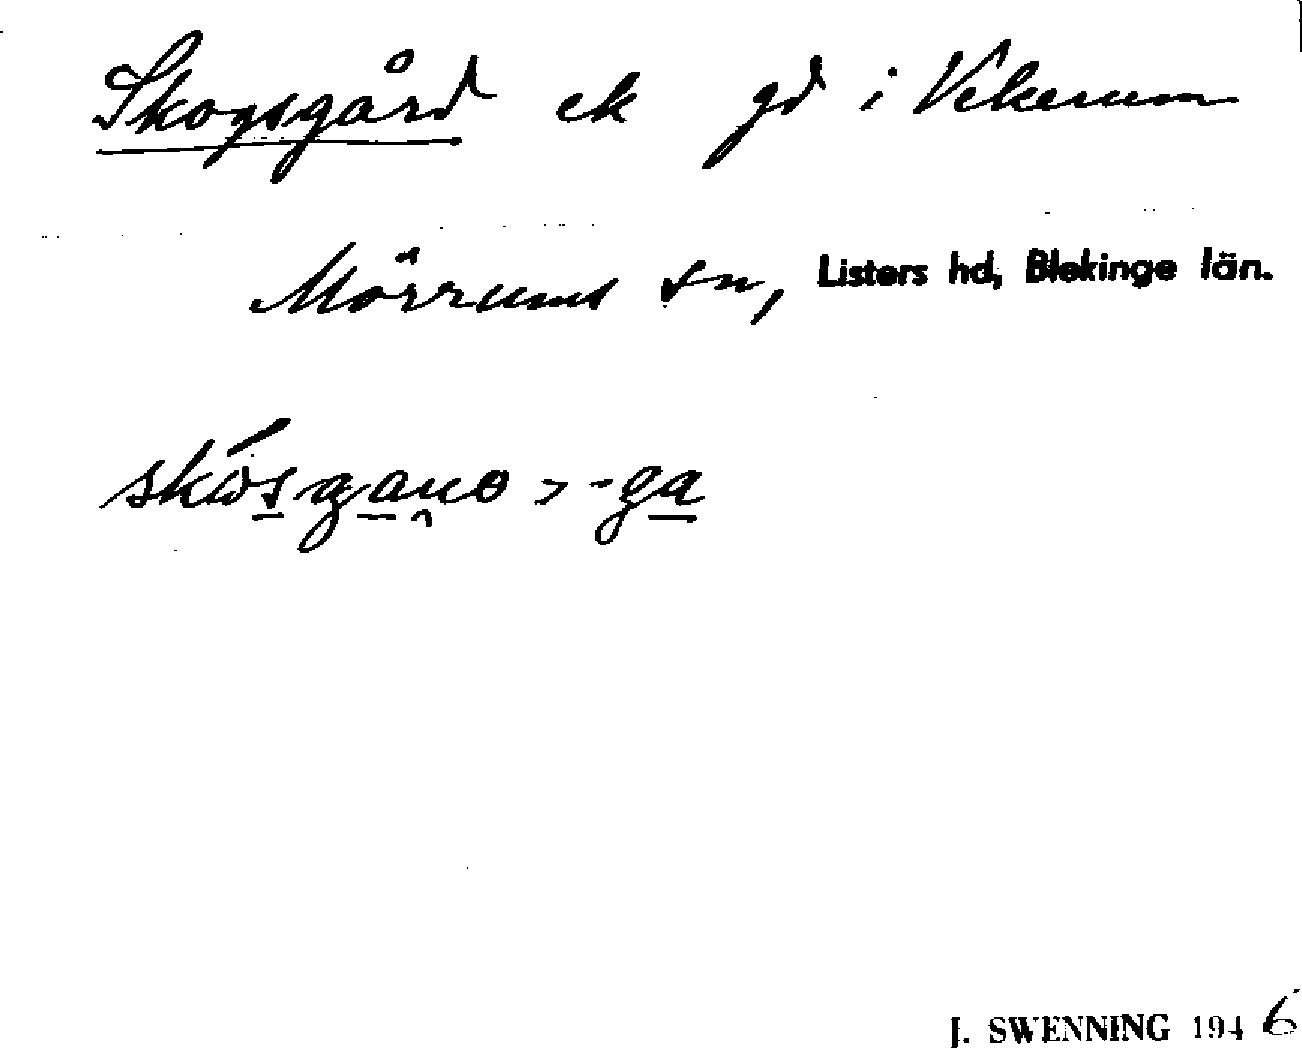 Skogsgård ek gd i Vekerum
Mörrums sn, Listers hd, Blekinge län.
J. SWENNING 1946